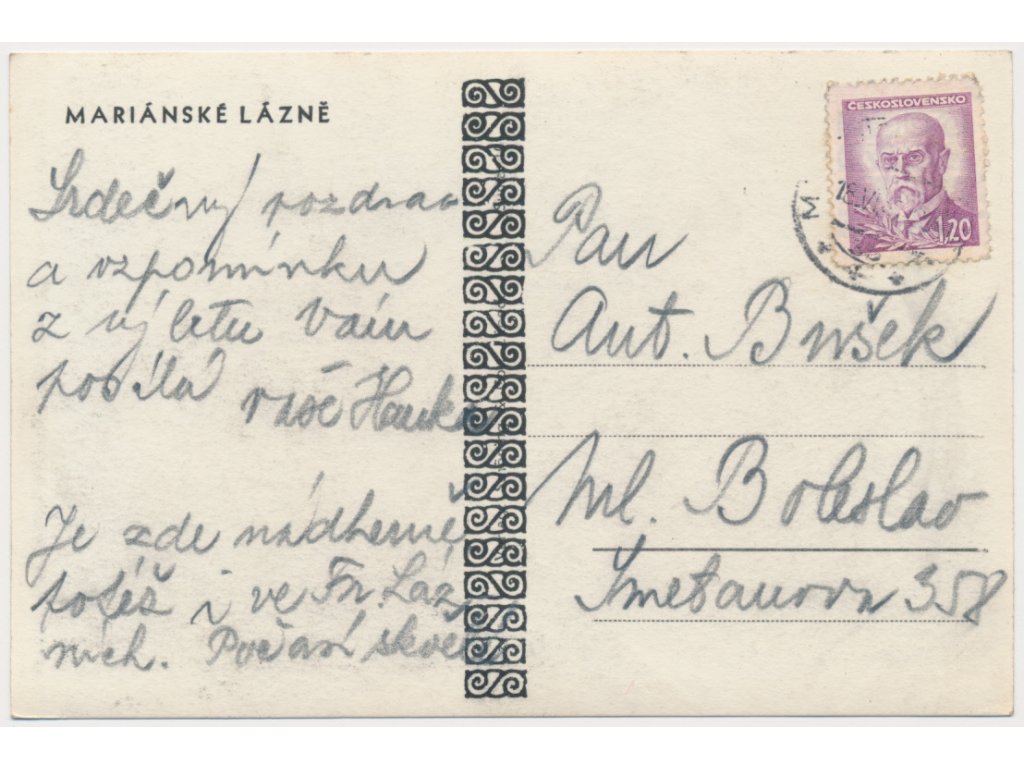 MARIÁNSKÉ LÁZNĚ
Srdečný pozdrav
a vzpomínku
z výletu Vám
posílá
vaše Hanka
Je zde nádherně
totéž i ve Fr. Láz
ních. Počasí skvělé
ČESKOSLOVENSKO
1,20
Pan
Ant. Bušek
Ml. Boleslav
Smetanova 358